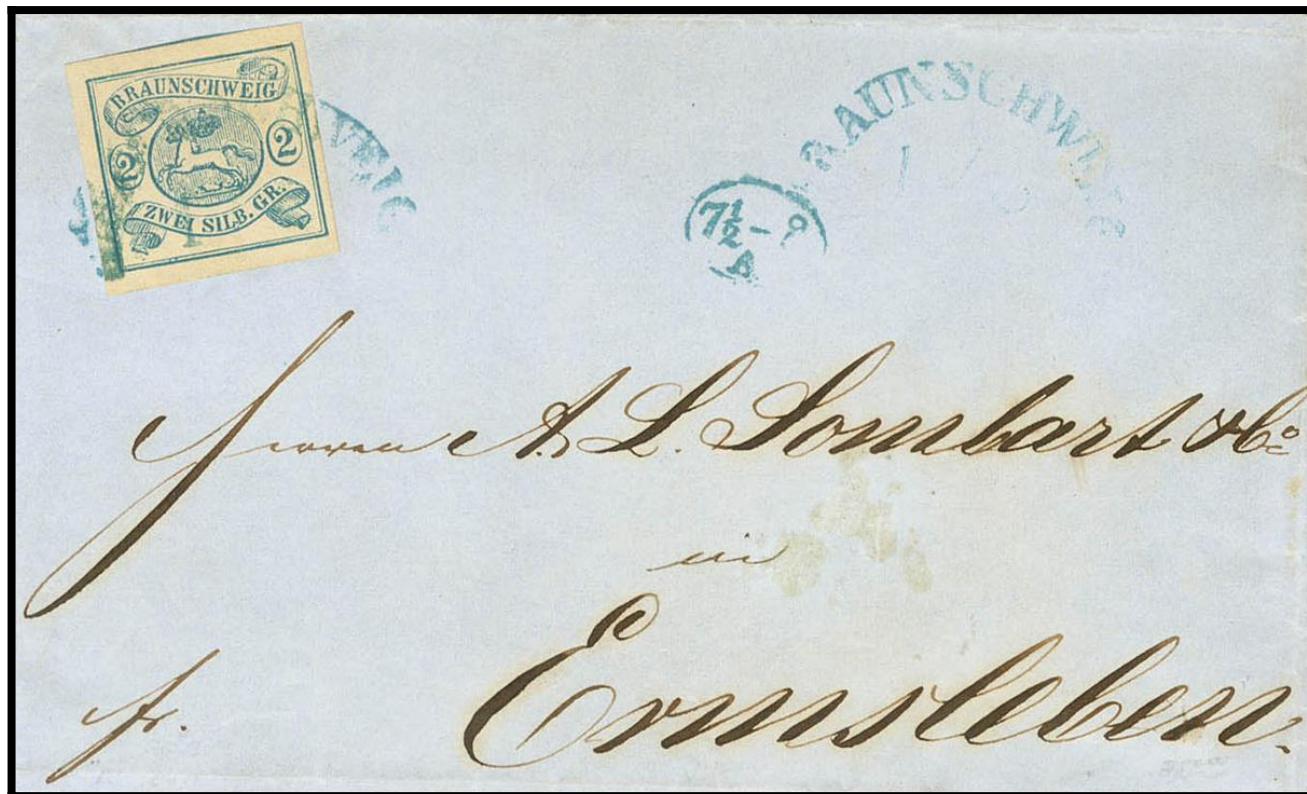 BRAUNSCHWEIG
2 2
ZWEI SILB. GR.
VEIG
RAUNSCHWEIG
7½-
A
Herren A. L. Sombart & Co
in
Ermsleben.
fr.